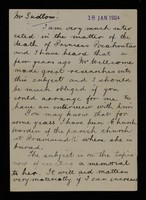 Mr Sudlow:
18 JAN 1924
I am very much inter
ested in the matter of the
death of Princess Pocahontas
and I have heard that a
few years ago Mr Wellcome
made great researches into
the subject and I should
be much obliged if you
could arrange for me to
have an interview with him
You may know that for
some years I have been Church
warden of the parish church
at Gravesend where she was
buried.
The subject is on the tapis
now of a memorial
to her. It will aid matters
very materially if I can increase